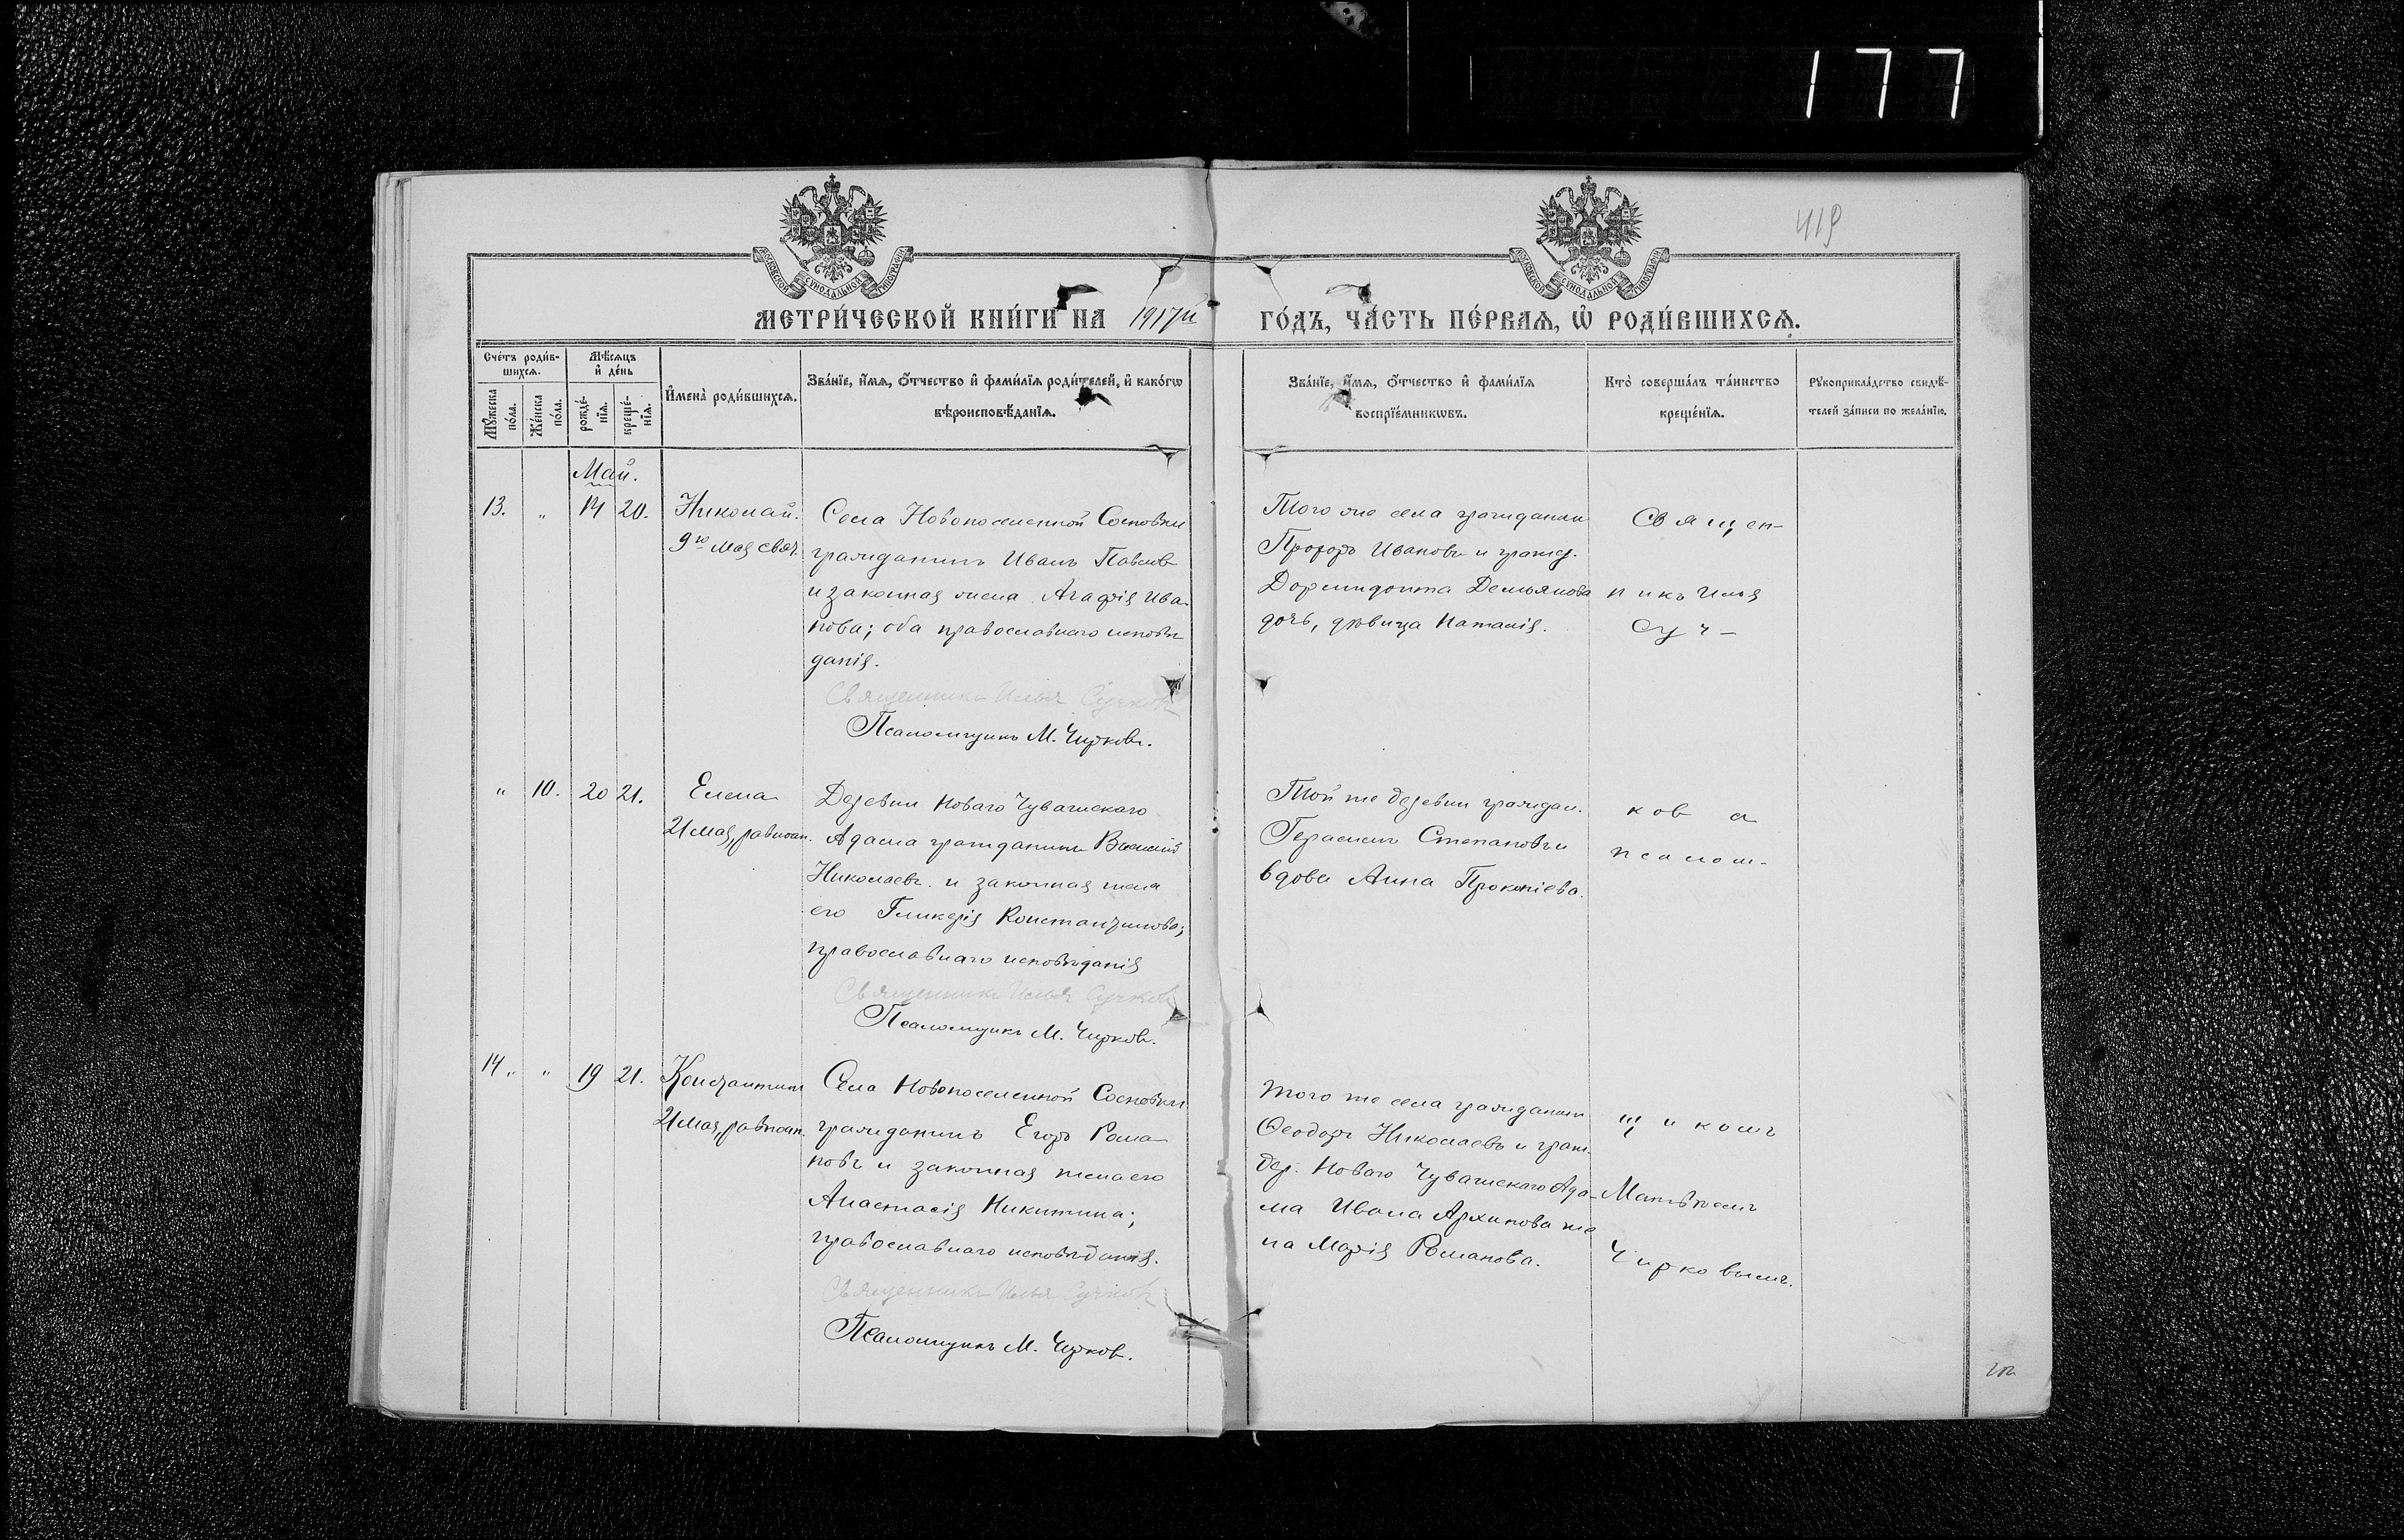 177
419
МЕТРИ́ЧЕСКОЙ КНИ́ГИ НА 1917й ГО́ДЪ, ЧА́СТЬ ПЕ́РВАѦ, Ѡ҆ РОДИ́ВШИХСѦ.
Сче́тъ роди́в-
шихсѧ.
Мꙋ́жеска по́ла.
Же́нска по́ла.
Мѣ́сѧцъ
и҆ де́нь
рожде́-
нїѧ.
креще́-
нїѧ.
И҆мена̀ роди́вшихсѧ.
Зва́нїе, и҆́мѧ, ѻ҆́тчество и҆ фами́лїѧ роди́телей, и҆ како́гѡ
вѣроисповѣ́данїѧ.
Зва́нїе, и҆́мѧ, ѻ҆́тчество и҆ фами́лїѧ
воспрїе́мникѡвъ.
Кто̀ соверша́лъ та́инство
креще́нїѧ.
Рꙋкоприкла́дство свидѣ́-
телей за́писи по жела́нїю.
Май.
13. " 14 20.
Николай.
9го мая свят.
Села Новопоселенной Сосновки
гражданинъ Иванъ Павловъ
и законная жена Агафія Ива-
нова; оба православнаго исповѣ
данія.
Священникъ Илья Сучковъ
Псаломщикъ М. Чирковъ.
Того же села гражданин
Прохоръ Ивановъ и гражд.
Дормидонта Демьянова
дочь, дѣвица Наталія.
Священ-
никъ Илья
Суч-
" 10. 20 21.
Елена
21 мая, равноап.
Деревни Новаго Чувашскаго
Адама гражданинъ Василий
Николаевъ и законная жена
его Гликерія Константинова;
православнаго исповѣданія
Священникъ Илья Сучковъ
Псаломщикъ М. Чирковъ.
Той же деревни граждан.
Герасимъ Степановъ и
вдова Анна Прокопіева.
ков а
псалом-
14 " " 19 21.
Константинъ
21 мая, равноап.
Села Новопоселенной Сосновки
гражданинъ Егоръ Рома
новъ и законная жена его
Анастасія Никитина;
православнаго исповѣданія.
Священникъ Илья Сучковъ
Псаломщикъ М. Чирковъ.
Того же села гражданин
Ѳеодоръ Николаевъ и граж.
дер. Новаго Чувашскаго Ада-
ма Ивана Архипова же
на Марія Романова.
щикомъ
Матвѣемъ
Чирковымъ.